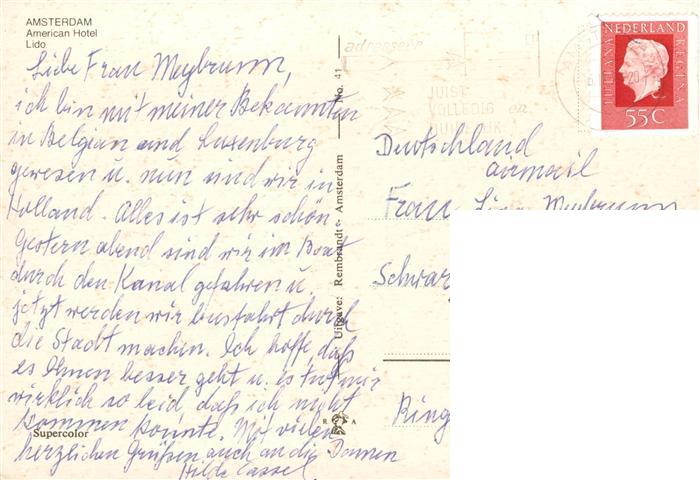 AMSTERDAM
American Hotel
Lido
Liebe Frau Meybrunn,
ich bin mit meiner Bekannten
in Belgian and Luxenburg
gewesen u. nun sind wir in
Holland. Alles ist sehr schön
Gestern abend sind wir im Boat
durch den Kanal gefahren u.
jetzt werden wir busfahrt durch
die Stadt machen. Ich hoffe, daß
es Ihnen besser geht u. es tut mir
wirklich so leid, daß ich nicht
kommen konnte. Mit vielen
herzlichen Grüßen auch an die Damen
Hilde Cassel
Supercolor
No. 41
Uitgave: Rembrandt - Amsterdam
R A
adresseer
JUIST
VOLLEDIG en
NEDERLAND
JULIANA REGINA
55C
Deutschland
airmail
Frau Meybrunn
Schwar
Ring